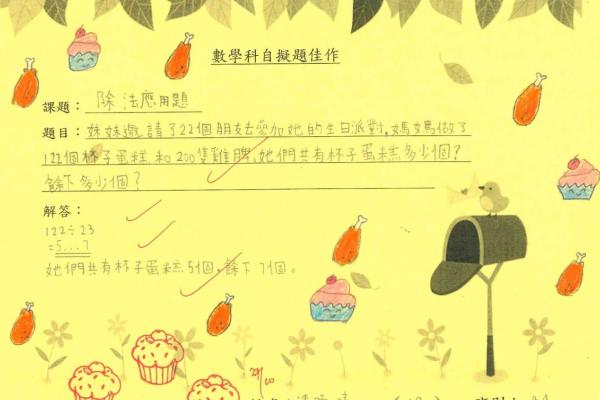 數學科自擬題佳作
課題：除法應用題
題目：妹妹邀請了22個朋友去參加她的生日派對,媽媽做了
122個杯子蛋糕和200隻雞脾,她們共有杯子蛋糕多少個?
餘下多少個?
解答：
122÷23
=5...7
她們共有杯子蛋糕5個,餘下7個。